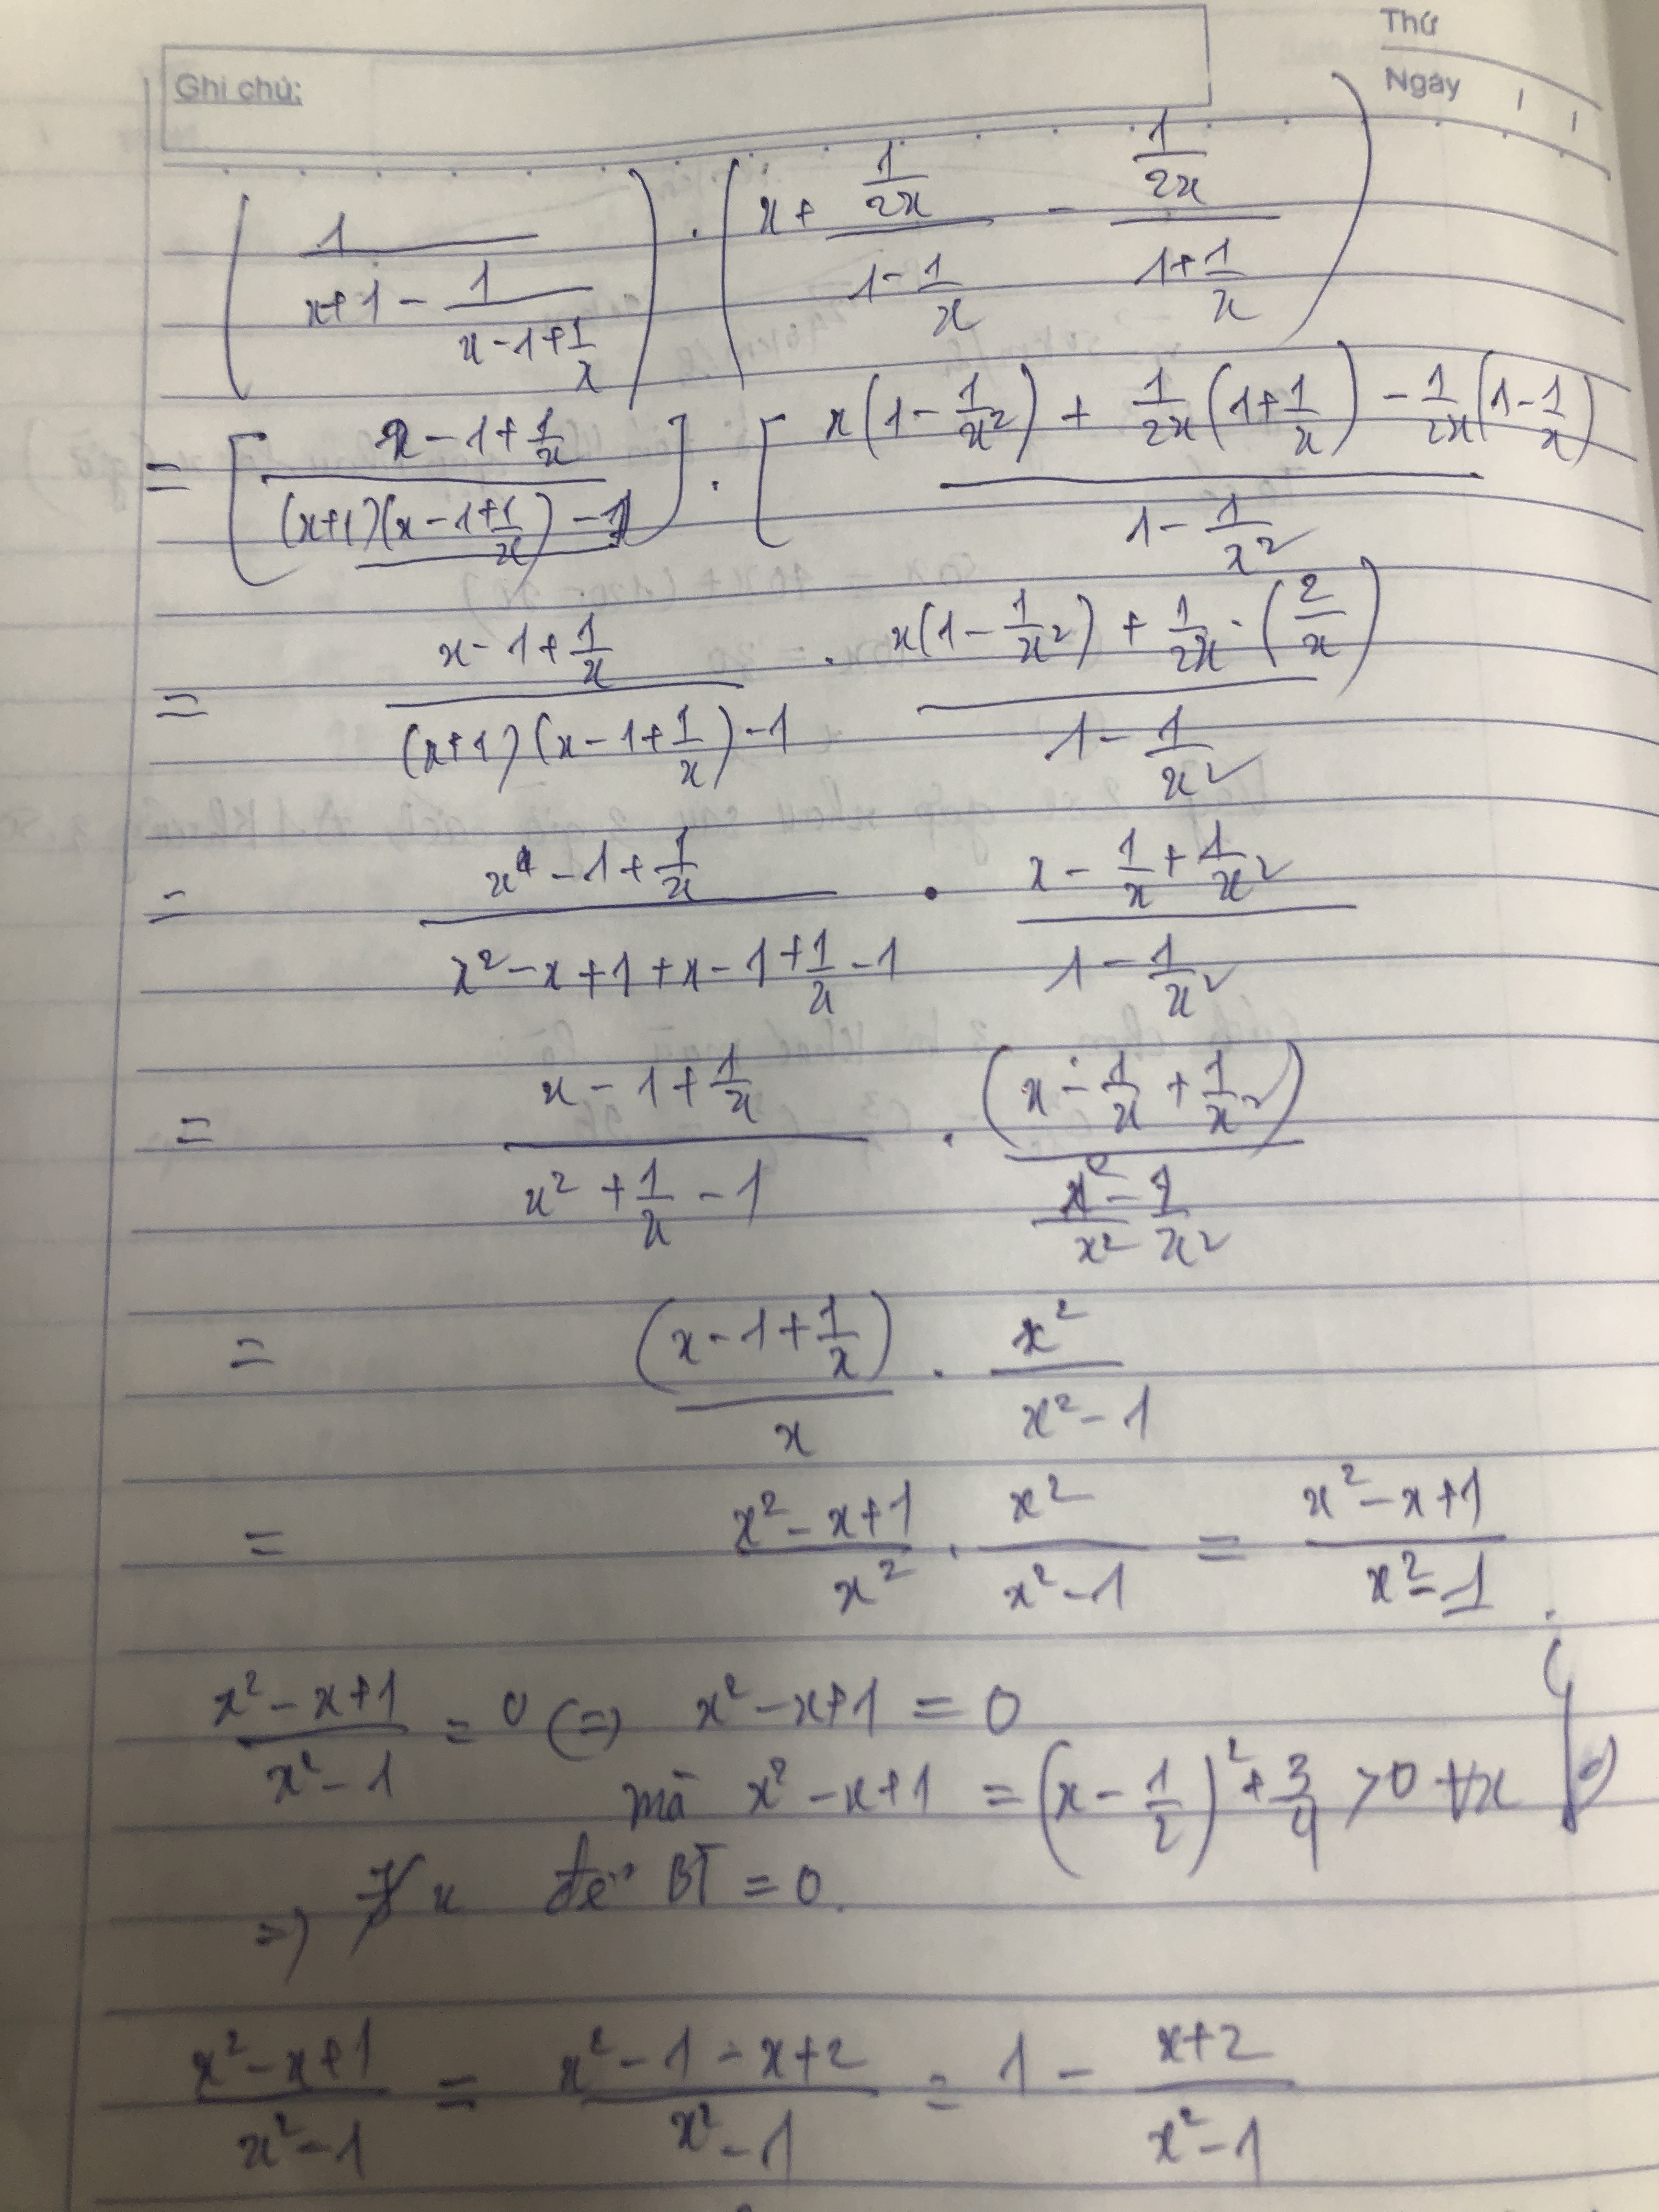 Thứ
Ghi chú:
Ngày / /
( 1/(x+1 - 1/(x-1+1/x)) ) . ( x + (1/2x)/(1-1/x) - (1/2x)/(1+1/x) )
= [ (x-1+1/x)/((x+1)(x-1+1/x)-1) ] . [ (x(1-1/x²) + 1/2x(1+1/x) - 1/2x(1-1/x))/(1-1/x²) ]
= (x-1+1/x)/((x+1)(x-1+1/x)-1) . (x(1-1/x²) + 1/2x . (2/x))/(1-1/x²)
= (x-1+1/x)/(x²-x+1+x-1+1/x-1) . (x-1/x+1/x²)/(1-1/x²)
= (x-1+1/x)/(x²+1/x-1) . (x-1/x+1/x²)/(x²/x²-1/x²)
= (x-1+1/x)/x . x²/(x²-1)
= (x²-x+1)/x² . x²/(x²-1) = (x²-x+1)/(x²-1) .
(x²-x+1)/(x²-1) = 0 (=) x²-x+1 = 0
mà x²-x+1 = (x-1/2)²+3/4 >0 ∀x
=) ∄ x để BT = 0.
(x²-x+1)/(x²-1) = (x²-1-x+2)/(x²-1) = 1 - (x+2)/(x²-1)